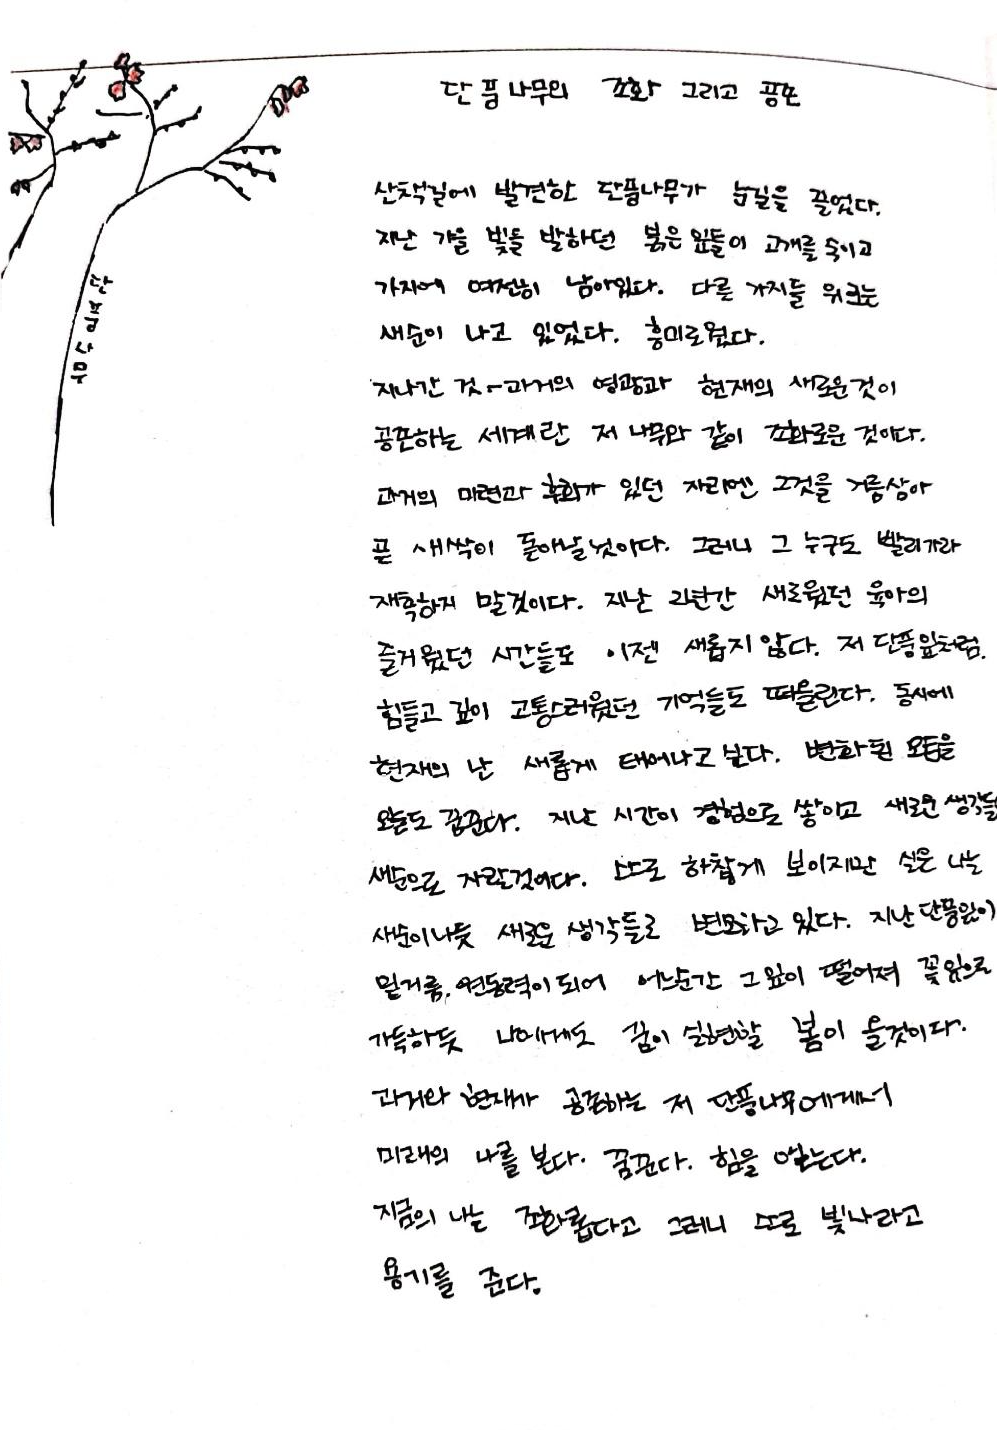 단풍나무의 조화 그리고 공존
산책길에 발견한 단풍나무가 눈길을 끌었다.
지난 가을 빛을 발하던 붉은 잎들이 고개를 숙이고
가지에 여전히 남아있다. 다른 가지들 위로는
새순이 나고 있었다. 흥미로웠다.
지나간 것-과거의 영광과 현재의 새로운것이
공존하는 세계란 저 나무와 같이 조화로운 것이다.
과거의 미련과 후회가 있던 자리엔 그것을 거름삼아
푿 새싹이 돋아날것이다. 그러니 그 누구도 빨리가라
재촉하지 말것이다. 지난 2년간 새로웠던 육아의
즐거웠던 시간들도 이젠 새롭지않다. 저 단풍잎처럼.
힘들고 깊이 고통스러웠던 기억들도 떠올린다. 동시에
현재의 난 새롭게 태어나고싶다. 변화된 모습을
오늘도 꿈꾼다. 지난 시간이 경험으로 쌓이고 새로운 생각들
새순으로 자랄것이다. 하찮게 보이지만 실은 나는
새순이나듯 새로운 생각들로 변모하고있다. 지난 단풍잎이
밑거름, 원동력이되어 어느순간 그 잎이 떨어져 꽃잎으로
가득하듯 나에게도 꿈이 실현할 봄이 올것이다.
과거와 현재가 공존하는 저 단풍나무에게서
미래의 나를 본다. 꿈꾼다. 힘을 얻는다.
지금의 나는 조화롭다고 그러니 스스로 빛나라고
용기를 준다.
단풍나무